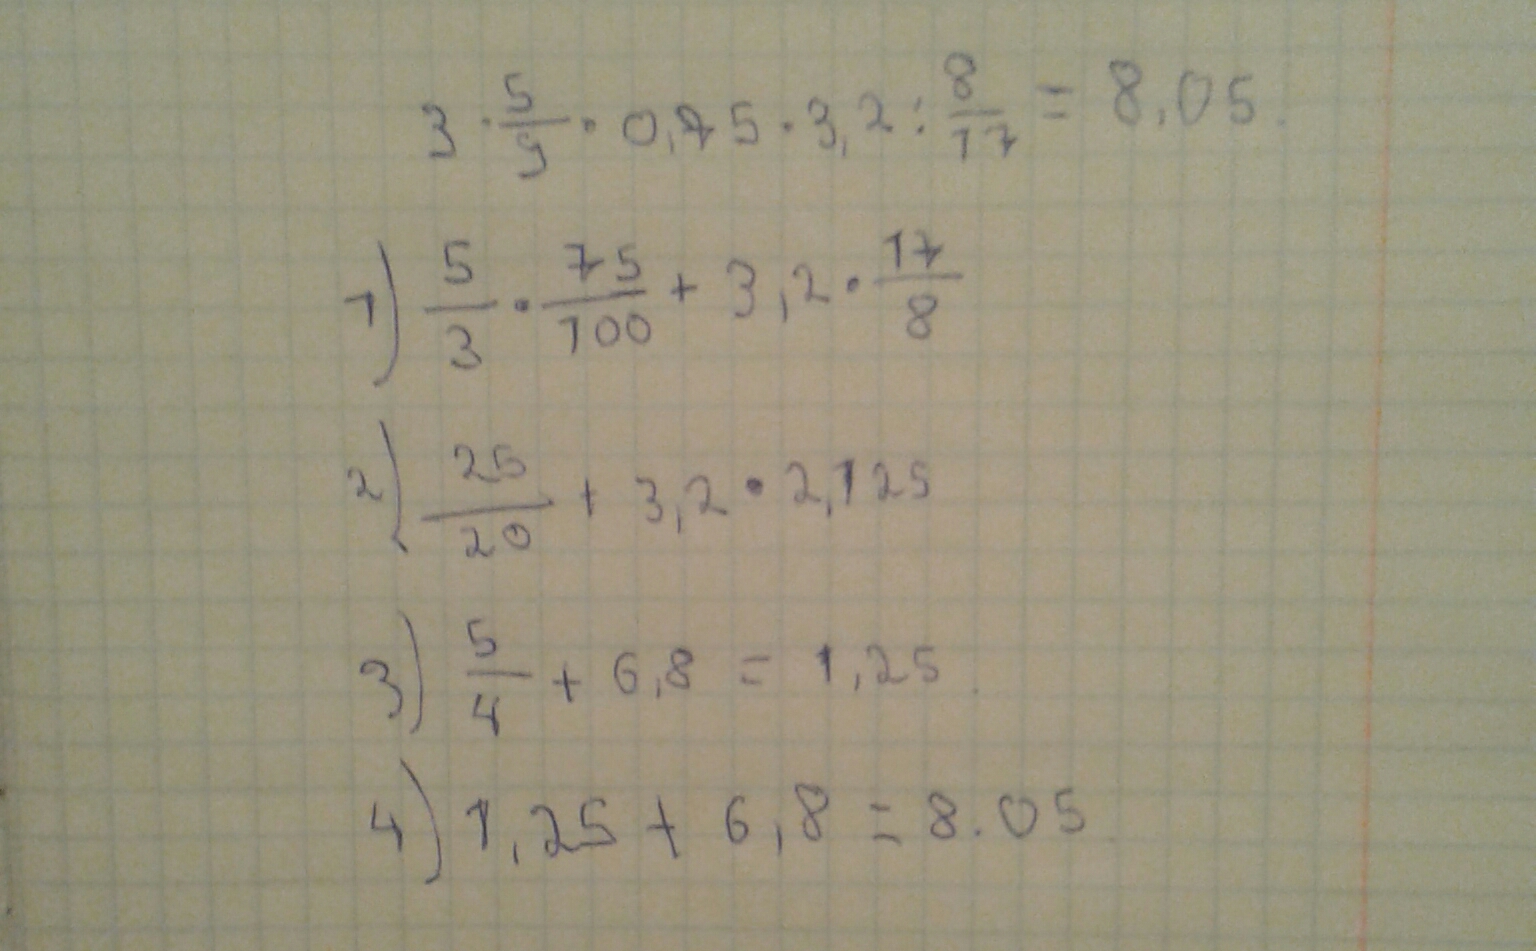 3 · 5/9 · 0,75 · 3,2 : 8/17 = 8.05.
1) 5/3 · 75/100 + 3,2 · 17/8
2) 25/20 + 3,2 · 2,125
3) 5/4 + 6,8 = 1,25.
4) 1,25 + 6,8 = 8.05